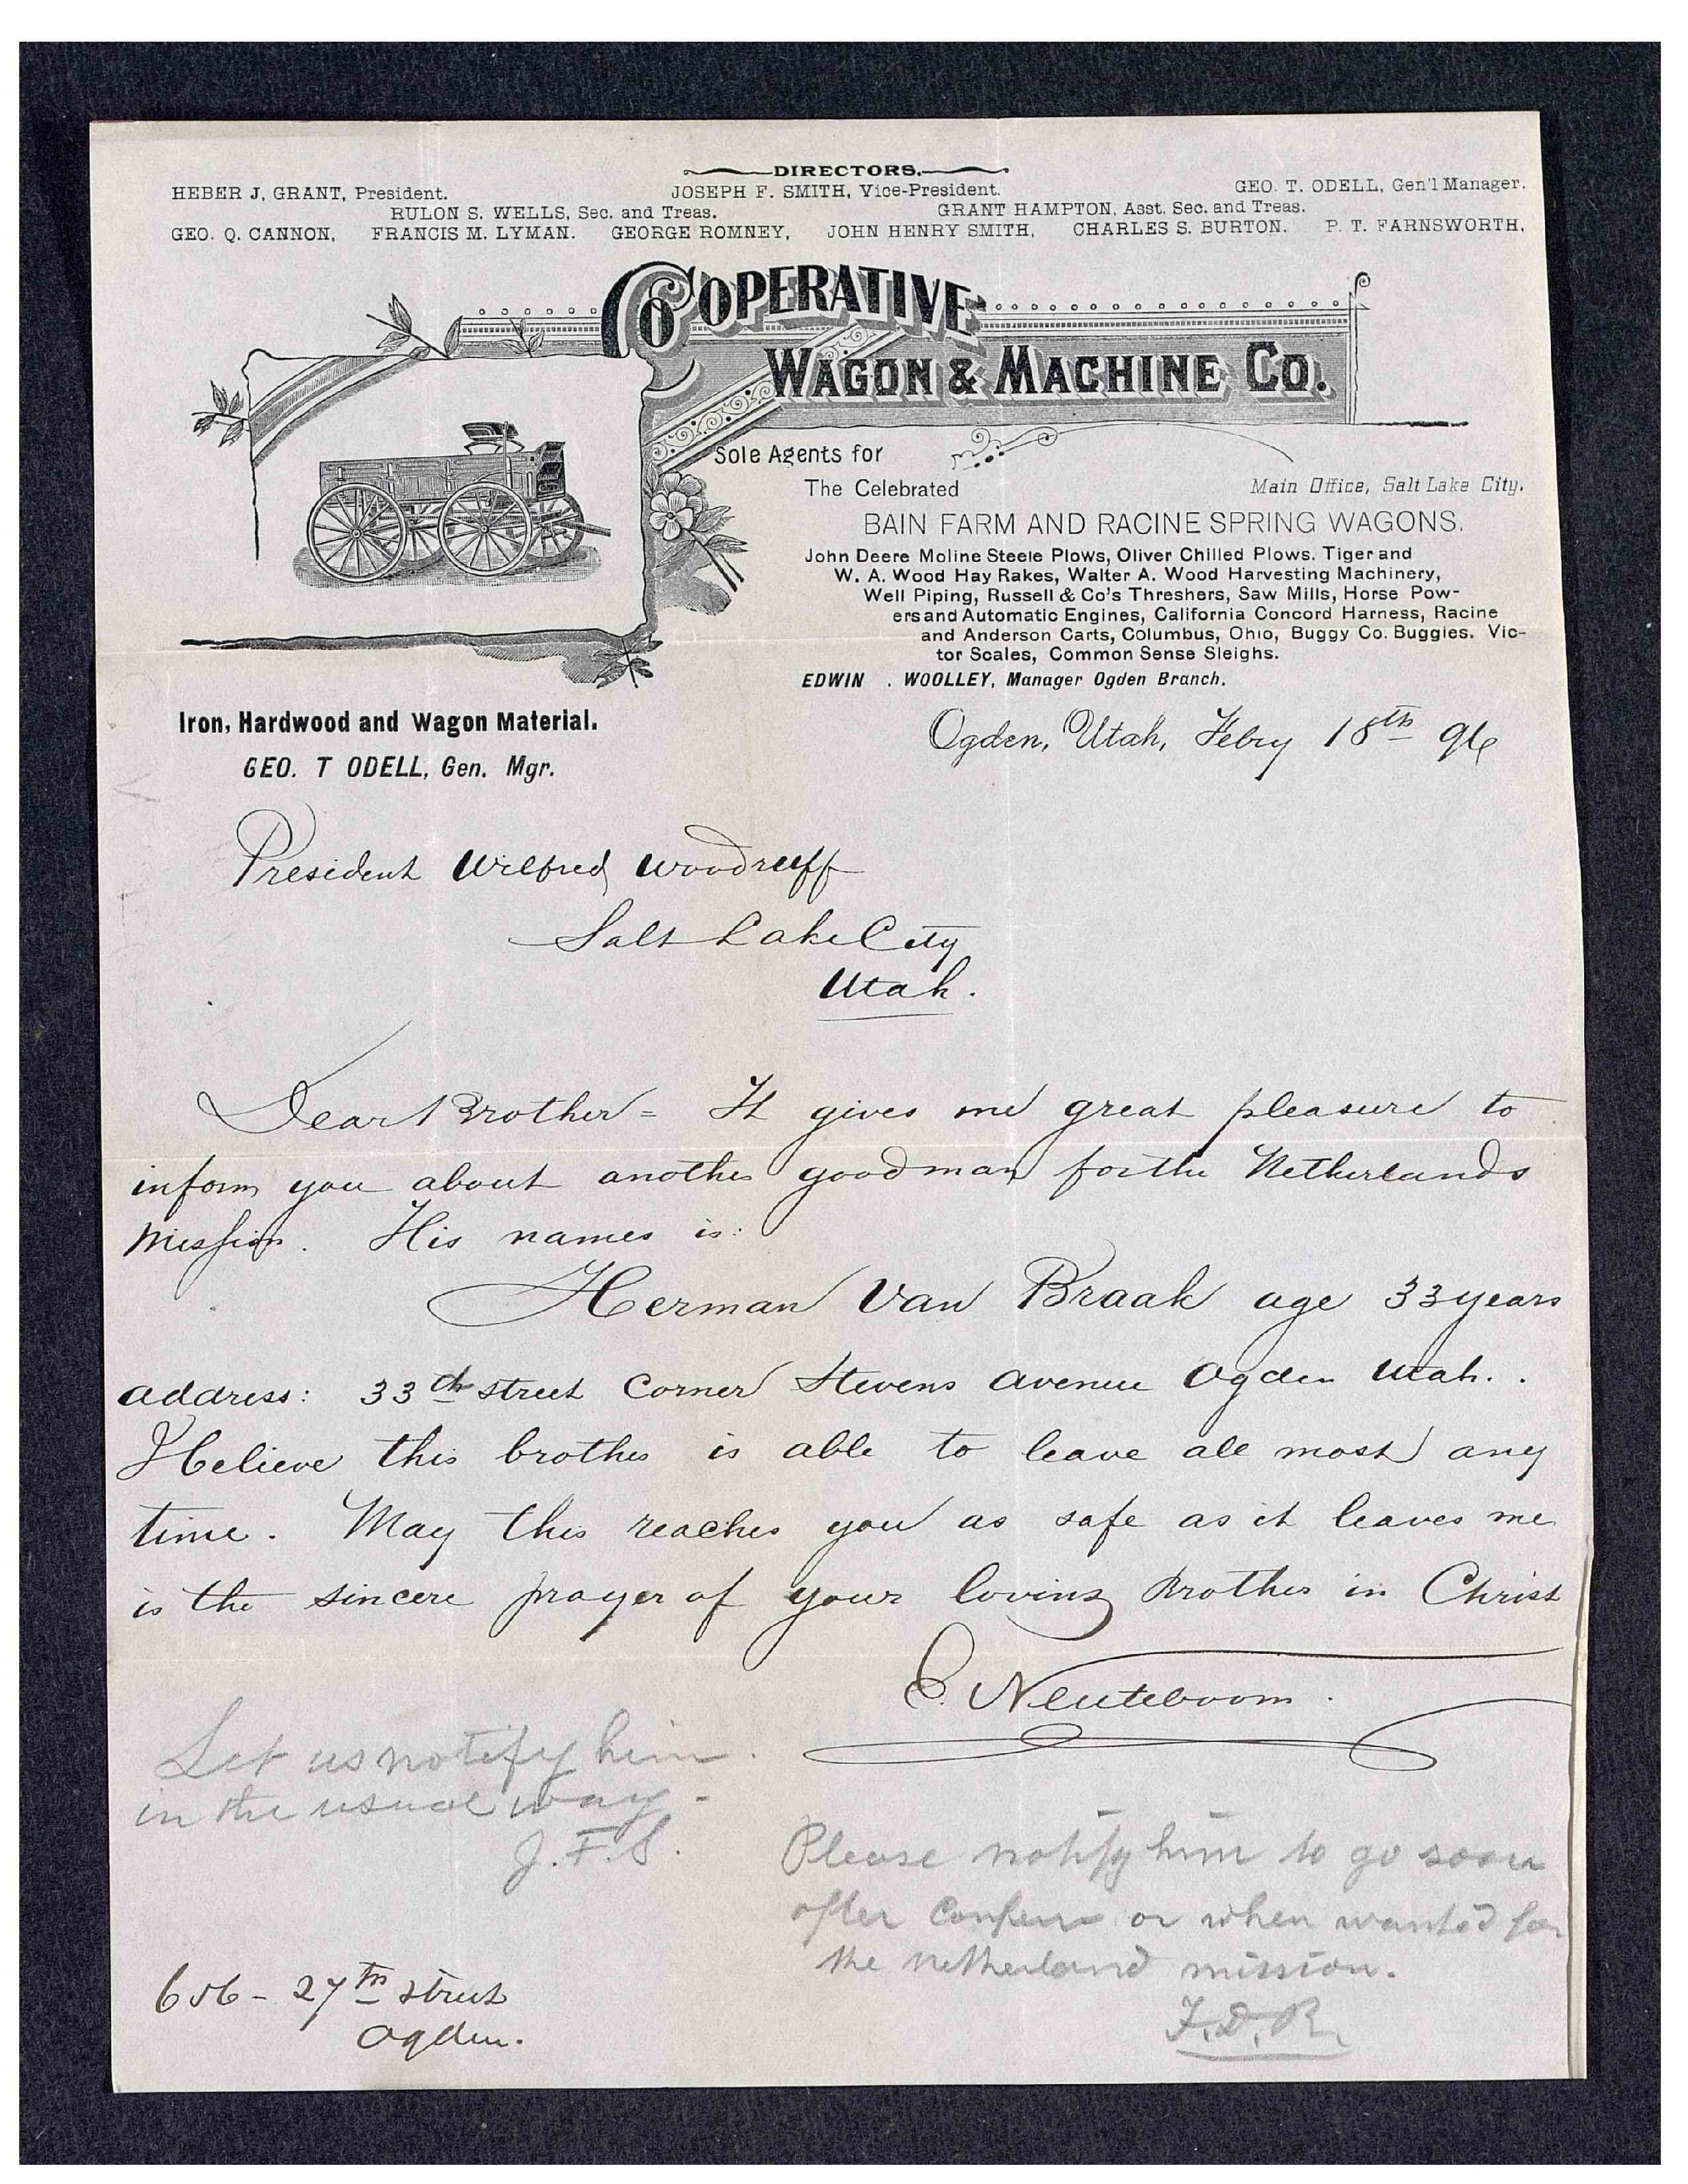 DIRECTORS.
HEBER J, GRANT, President. JOSEPH F. SMITH, Vice-President. GEO. T. ODELL, Gen'l Manager.
RULON S. WELLS, Sec. and Treas. GRANT HAMPTON, Asst. Sec. and Treas.
GEO. Q. CANNON, FRANCIS M. LYMAN. GEORGE ROMNEY, JOHN HENRY SMITH, CHARLES S. BURTON. P. T. FARNSWORTH,
COOPERATIVE
WAGON & MACHINE CO.
Sole Agents for
The Celebrated Main Office, Salt Lake City.
BAIN FARM AND RACINE SPRING WAGONS.
John Deere Moline Steele Plows, Oliver Chilled Plows. Tiger and
W. A. Wood Hay Rakes, Walter A. Wood Harvesting Machinery,
Well Piping, Russell & Co's Threshers, Saw Mills, Horse Pow-
ers and Automatic Engines, California Concord Harness, Racine
and Anderson Carts, Columbus, Ohio, Buggy Co. Buggies. Vic-
tor Scales, Common Sense Sleighs.
EDWIN . WOOLLEY, Manager Ogden Branch.
Iron, Hardwood and Wagon Material.
GEO. T ODELL, Gen. Mgr.
Ogden, Utah, Febry 18th 96
President Wilfred Woodruff
Salt Lake City
Utah.
Dear Brother = It gives me great pleasure to
inform you about another good man for the Netherlands
Mission. His names is:
Herman Van Braak age 33 years
address: 33th street Corner Stevens avenue Ogden Utah..
I believe this brother is able to leave all most any
time. May this reaches you as safe as it leaves me
is the sincere prayer of your loving Brother in Christ
E. Neuteboom.
Let us notify him.
in the usual way -
J. F. S.
Please notify him to go soon
after Conferce or when wanted for
the netherland mission.
F. D. R.
656 - 27th street
Ogden.